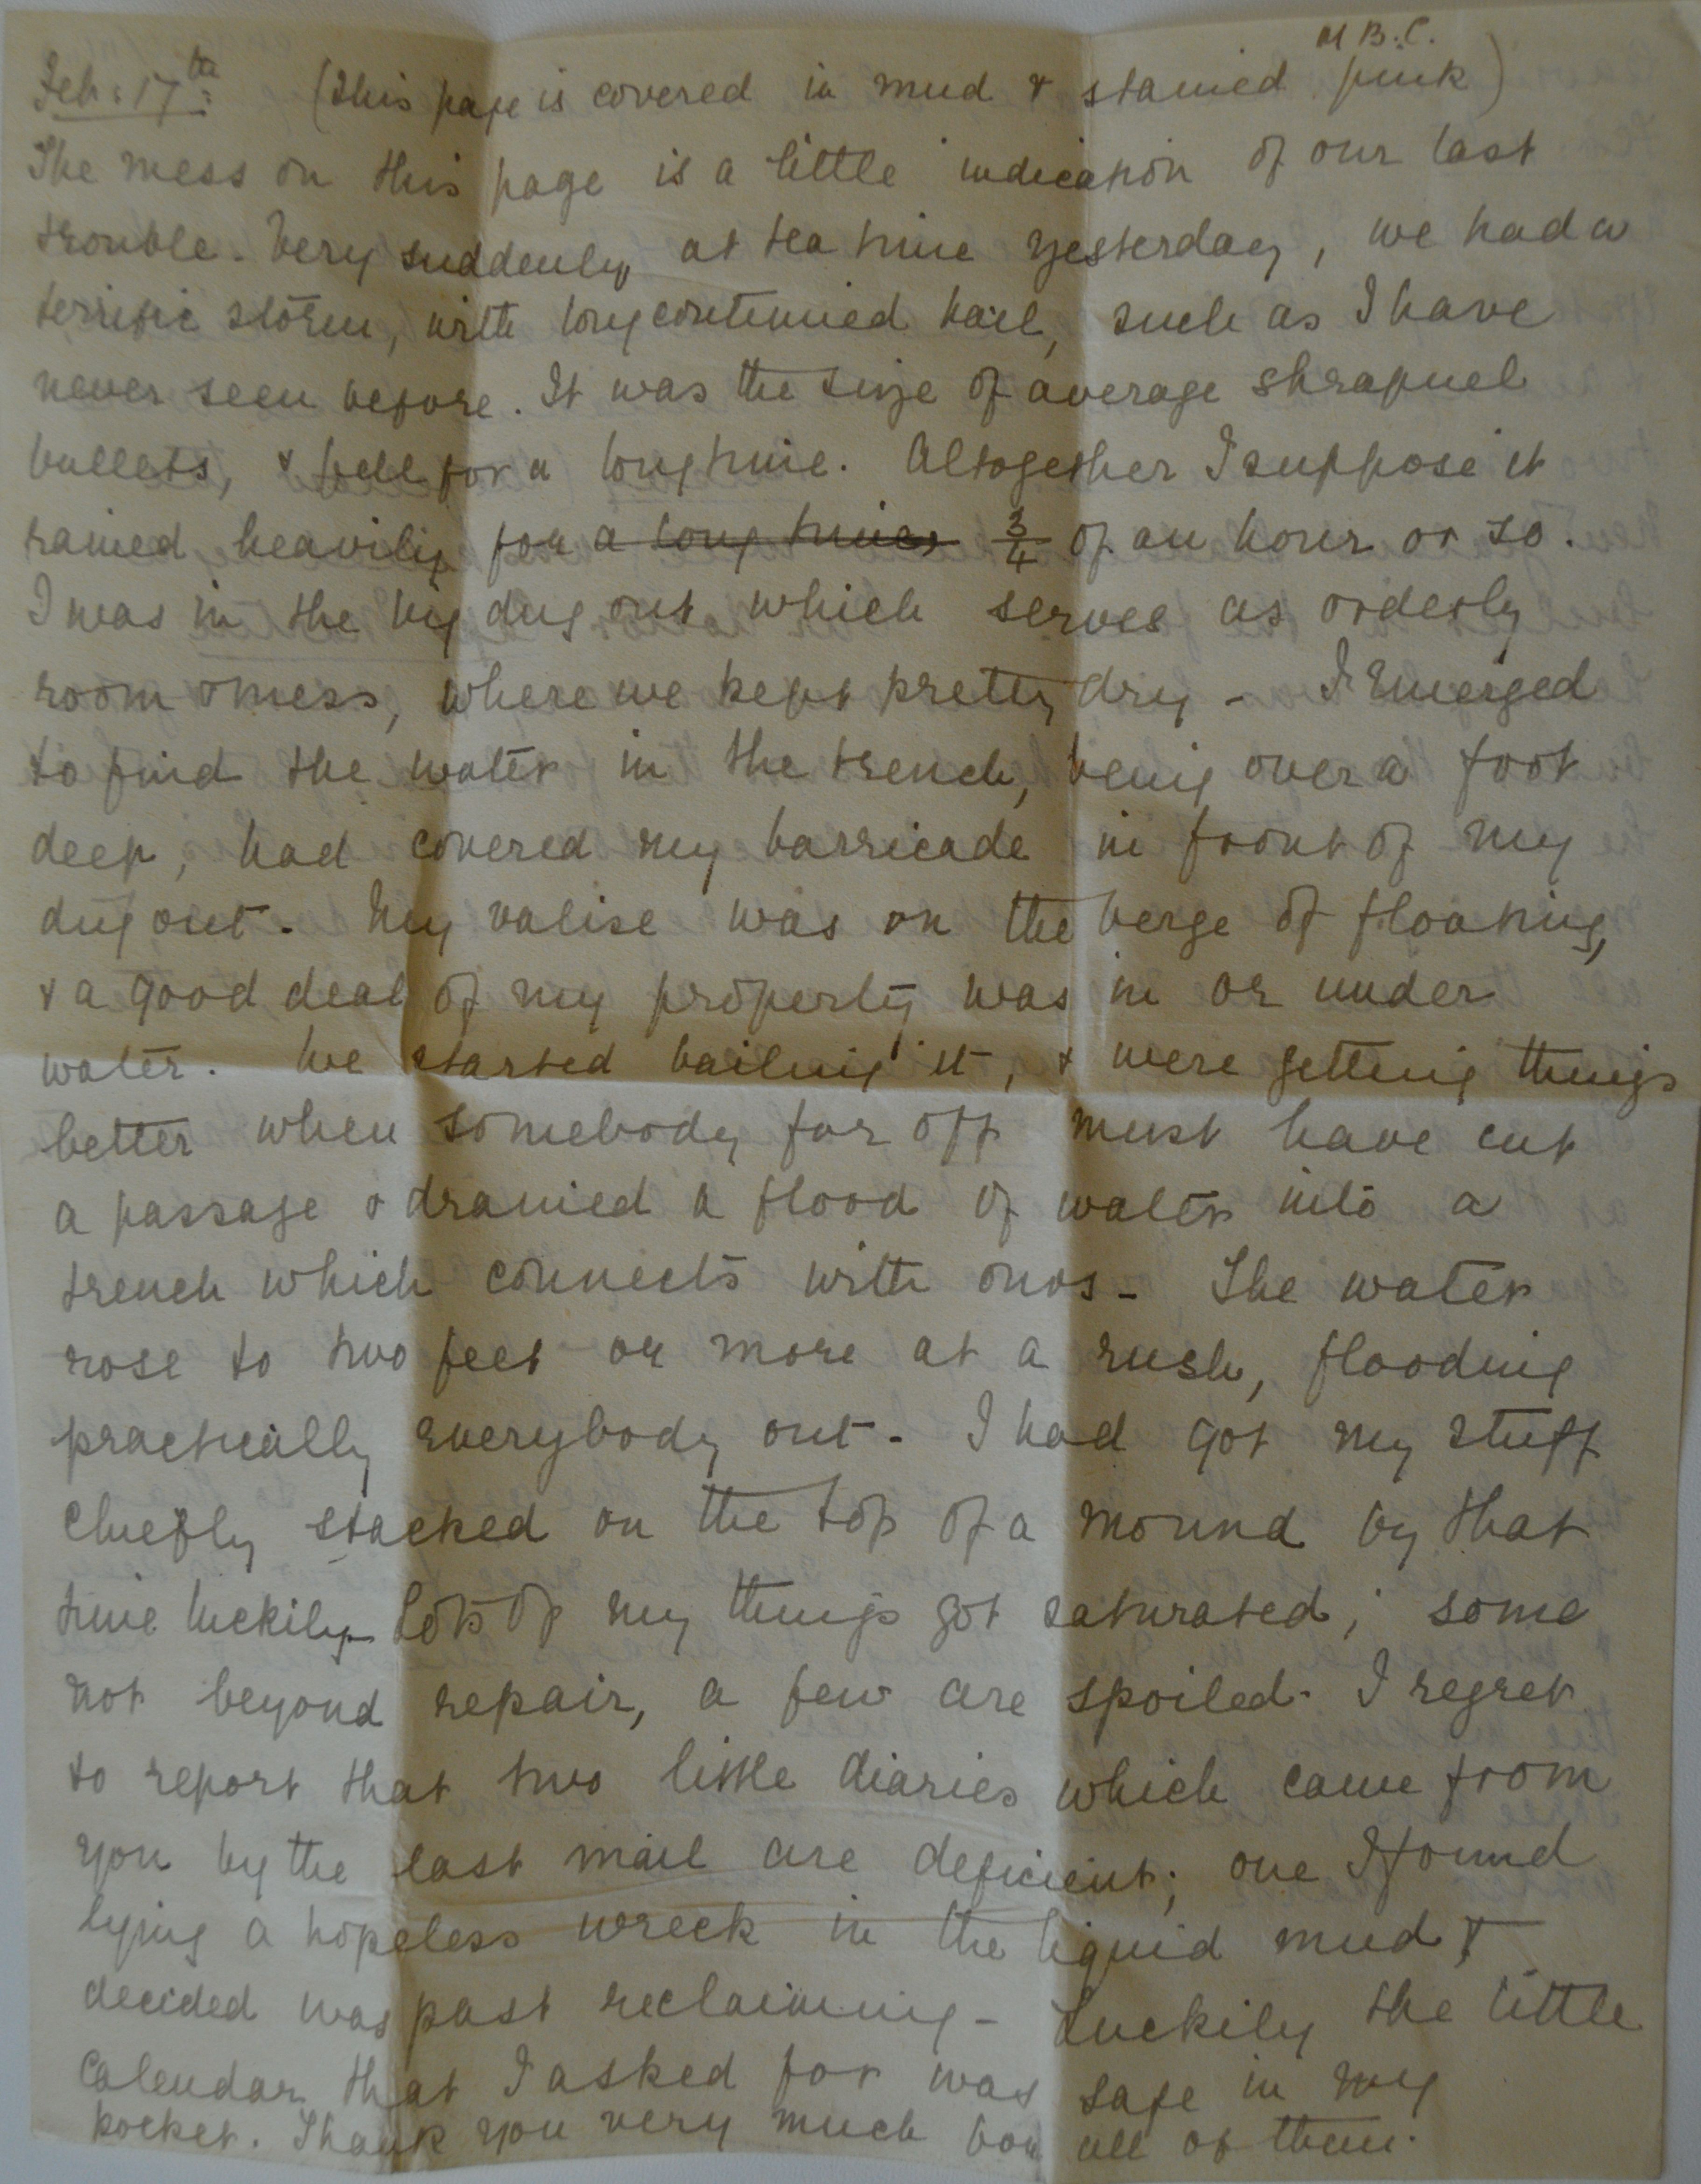 M B. C.
Feb: 17th: (This page is covered in mud & stained pink)
The mess on this page is a little indication of our last
trouble. Very suddenly, at tea time yesterday, we had a
terrific storm, with long continued hail, such as I have
never seen before. It was the size of average shrapnel
bullets, & fell for a long time. Altogether I suppose it
rained heavily for a long time, 3/4 of an hour or so.
I was in the big dug out which serves as orderly
room & mess, where we kept pretty dry - I emerged
to find the water in the trench, being over a foot
deep, had covered my barricade in front of my
dug out. My valise was on the verge of floating,
& a good deal of my property was in or under
water. We started bailing it, & were getting things
better when somebody far off must have cut
a passage & drained a flood of water into a
trench which connects with ours - The water
rose to two feet or more at a rush, flooding
practically everybody out - I had got my stuff
chiefly stacked on the top of a mound by that
time luckily - Lots of my things got saturated; some
not beyond repair, a few are spoiled - I regret
to report that two little diaries which came from
you by the last mail are deficient; one I found
lying a hopeless wreck in the liquid mud &
decided was past reclaiming - Luckily the little
calendar that I asked for was safe in my
pocket. Thank you very much for all of them.